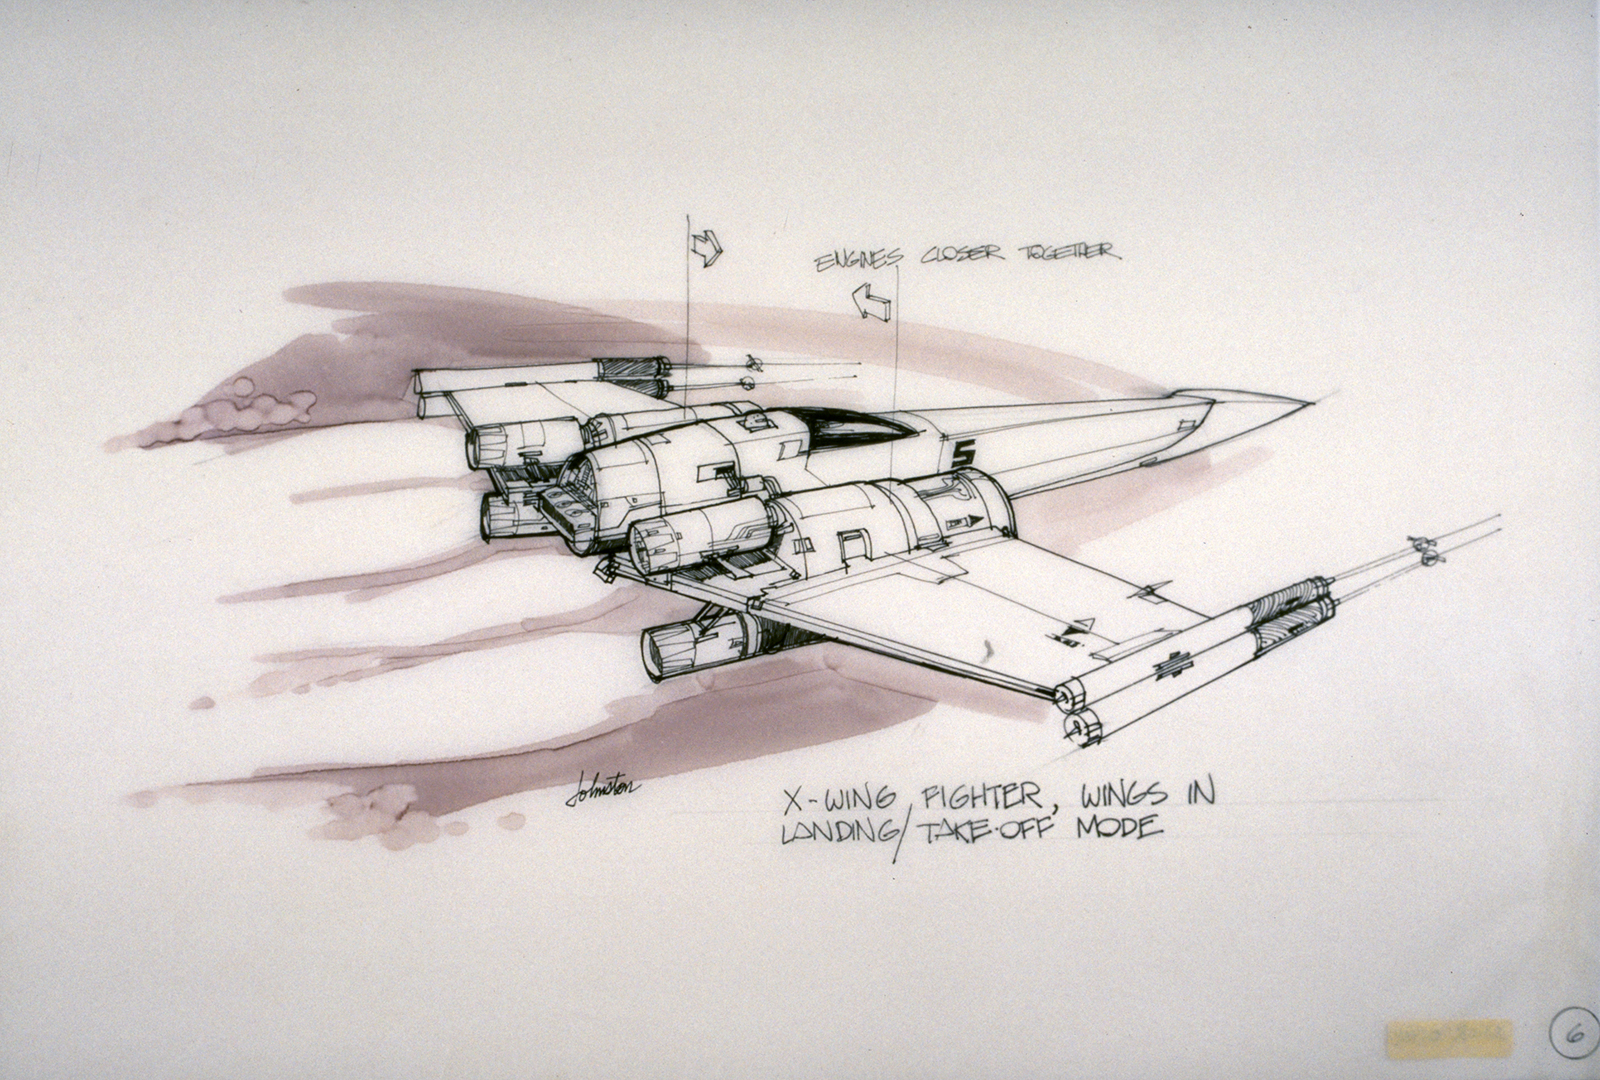 ENGINES CLOSER TOGETHER
5
Johnston
X-WING FIGHTER, WINGS IN
LANDING/TAKE-OFF MODE
6